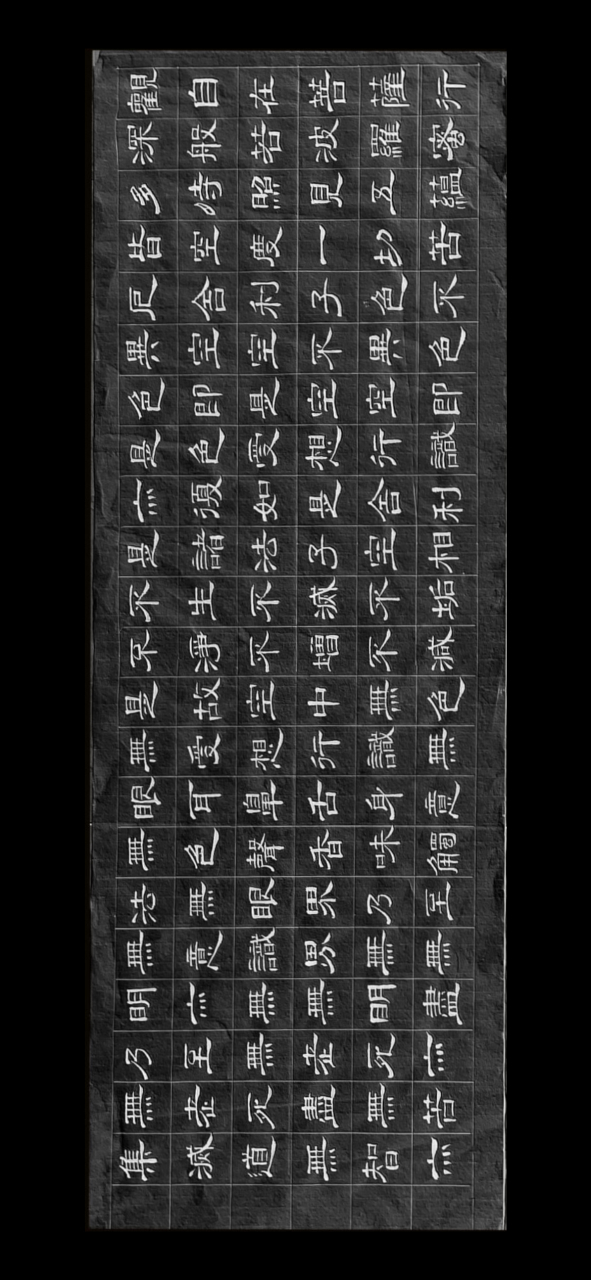 觀自在菩薩行
深般若波羅蜜
多時照見五蘊
皆空度一切苦
厄舍利子色不
異空空不異色
色即是空空即
是色受想行識
亦復如是舍利
是諸法子空相
不生不滅不垢
不淨不增不減
是故空中無色
無受想行識無
眼耳鼻舌身意
無色聲香味觸
法無眼界乃至
無意識界無無
明亦無無明盡
乃至無老死亦
無老死盡無苦
集滅道無智亦